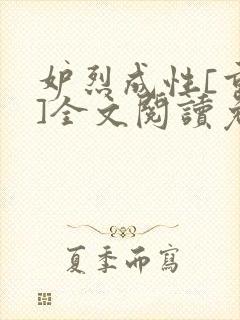 妒烈成性[
]全文閱讀
夏季而寫